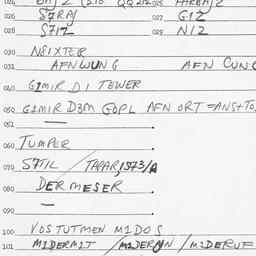 026 S7RAJ 027 G1Z
028 S71Z 029 N1Z
030 N8IXTER
031 AFNWUNG AFN CUNG
040 G1MIR DI TEWER
050 G1MIR D3M GOPL AFN ORT =ANS+TO
051
060 TUMPER
070 S71L / TAPAR,1S73/A
080 DERMESER
090
100 VOSTUTMEN M1DOS
101 M1DERM1T /M1DERJN /M1DERUF